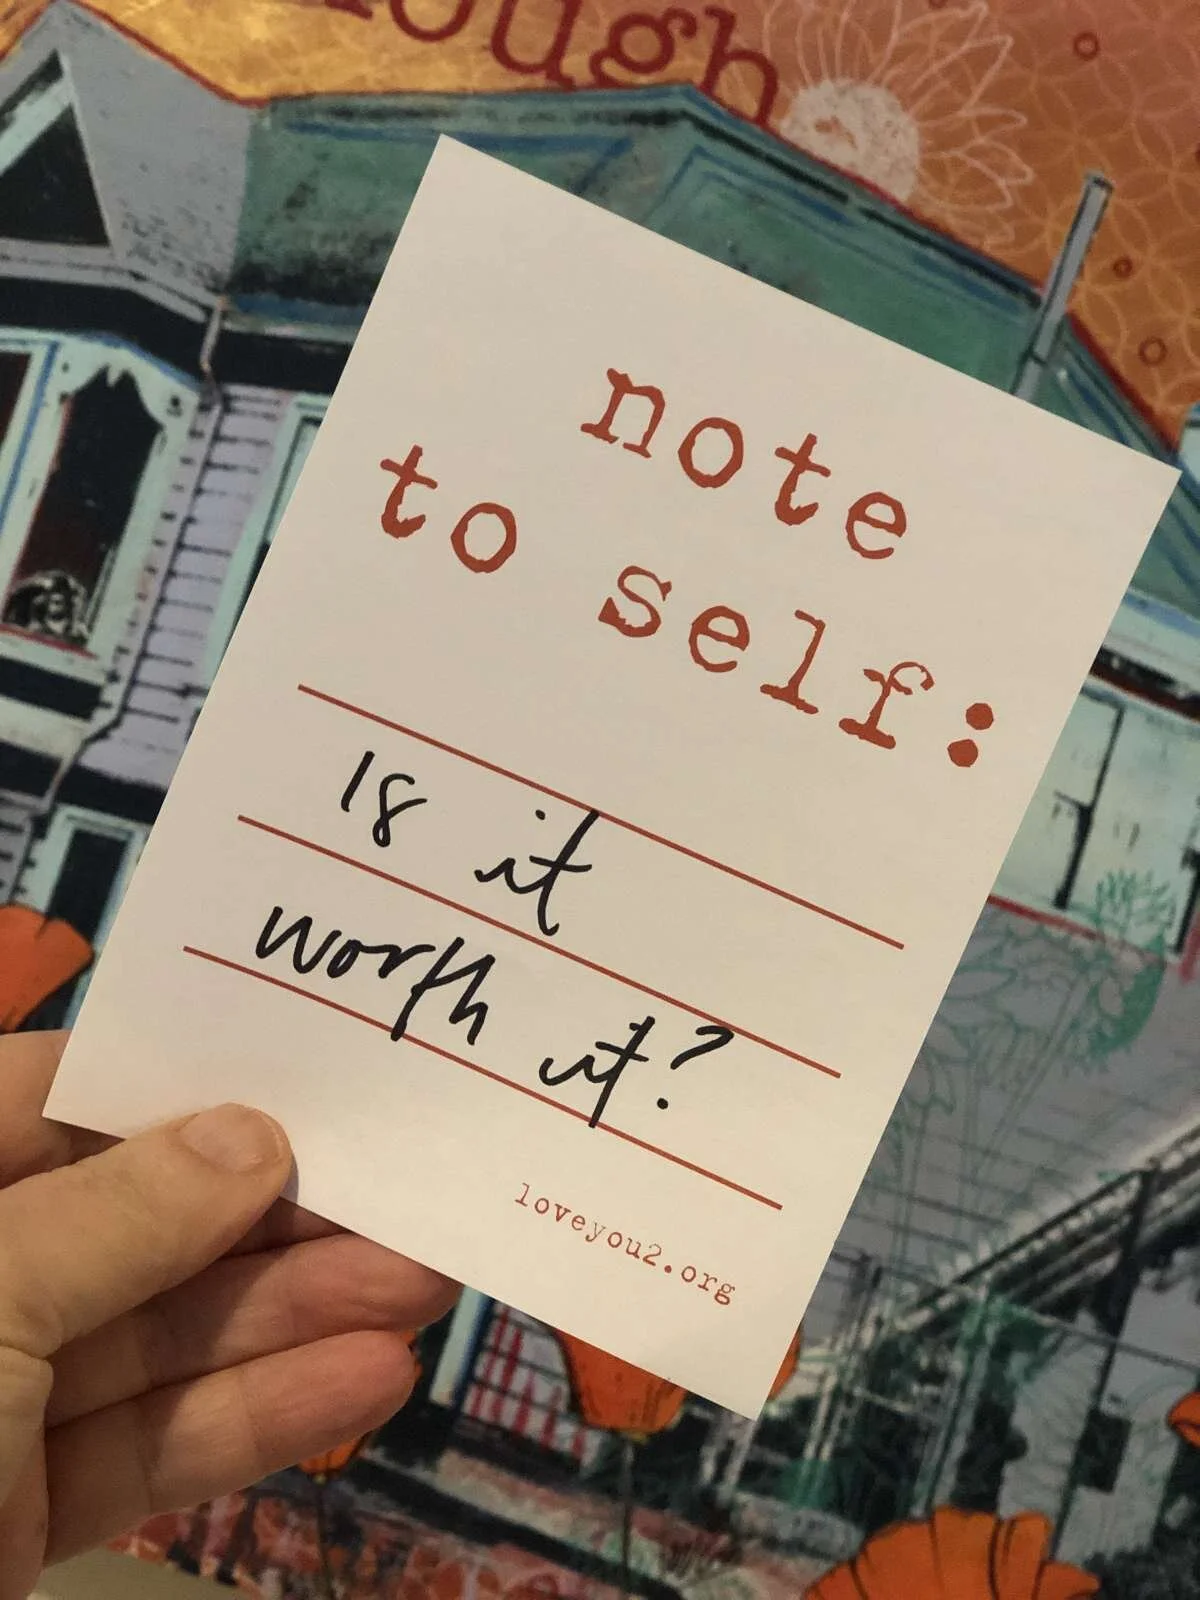 ough
note
to self:
Is it
worth it?
loveyou2.org